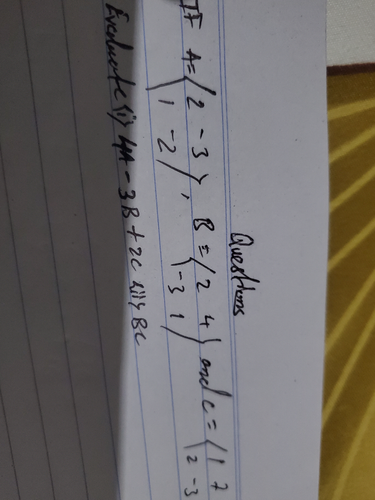 Questions
If A = (2 -3), B = (2 4) and C = (1 7
(1 -2) (-3 1) (2 -3
Evaluate (i) 4A - 3B + 2C (ii) BC